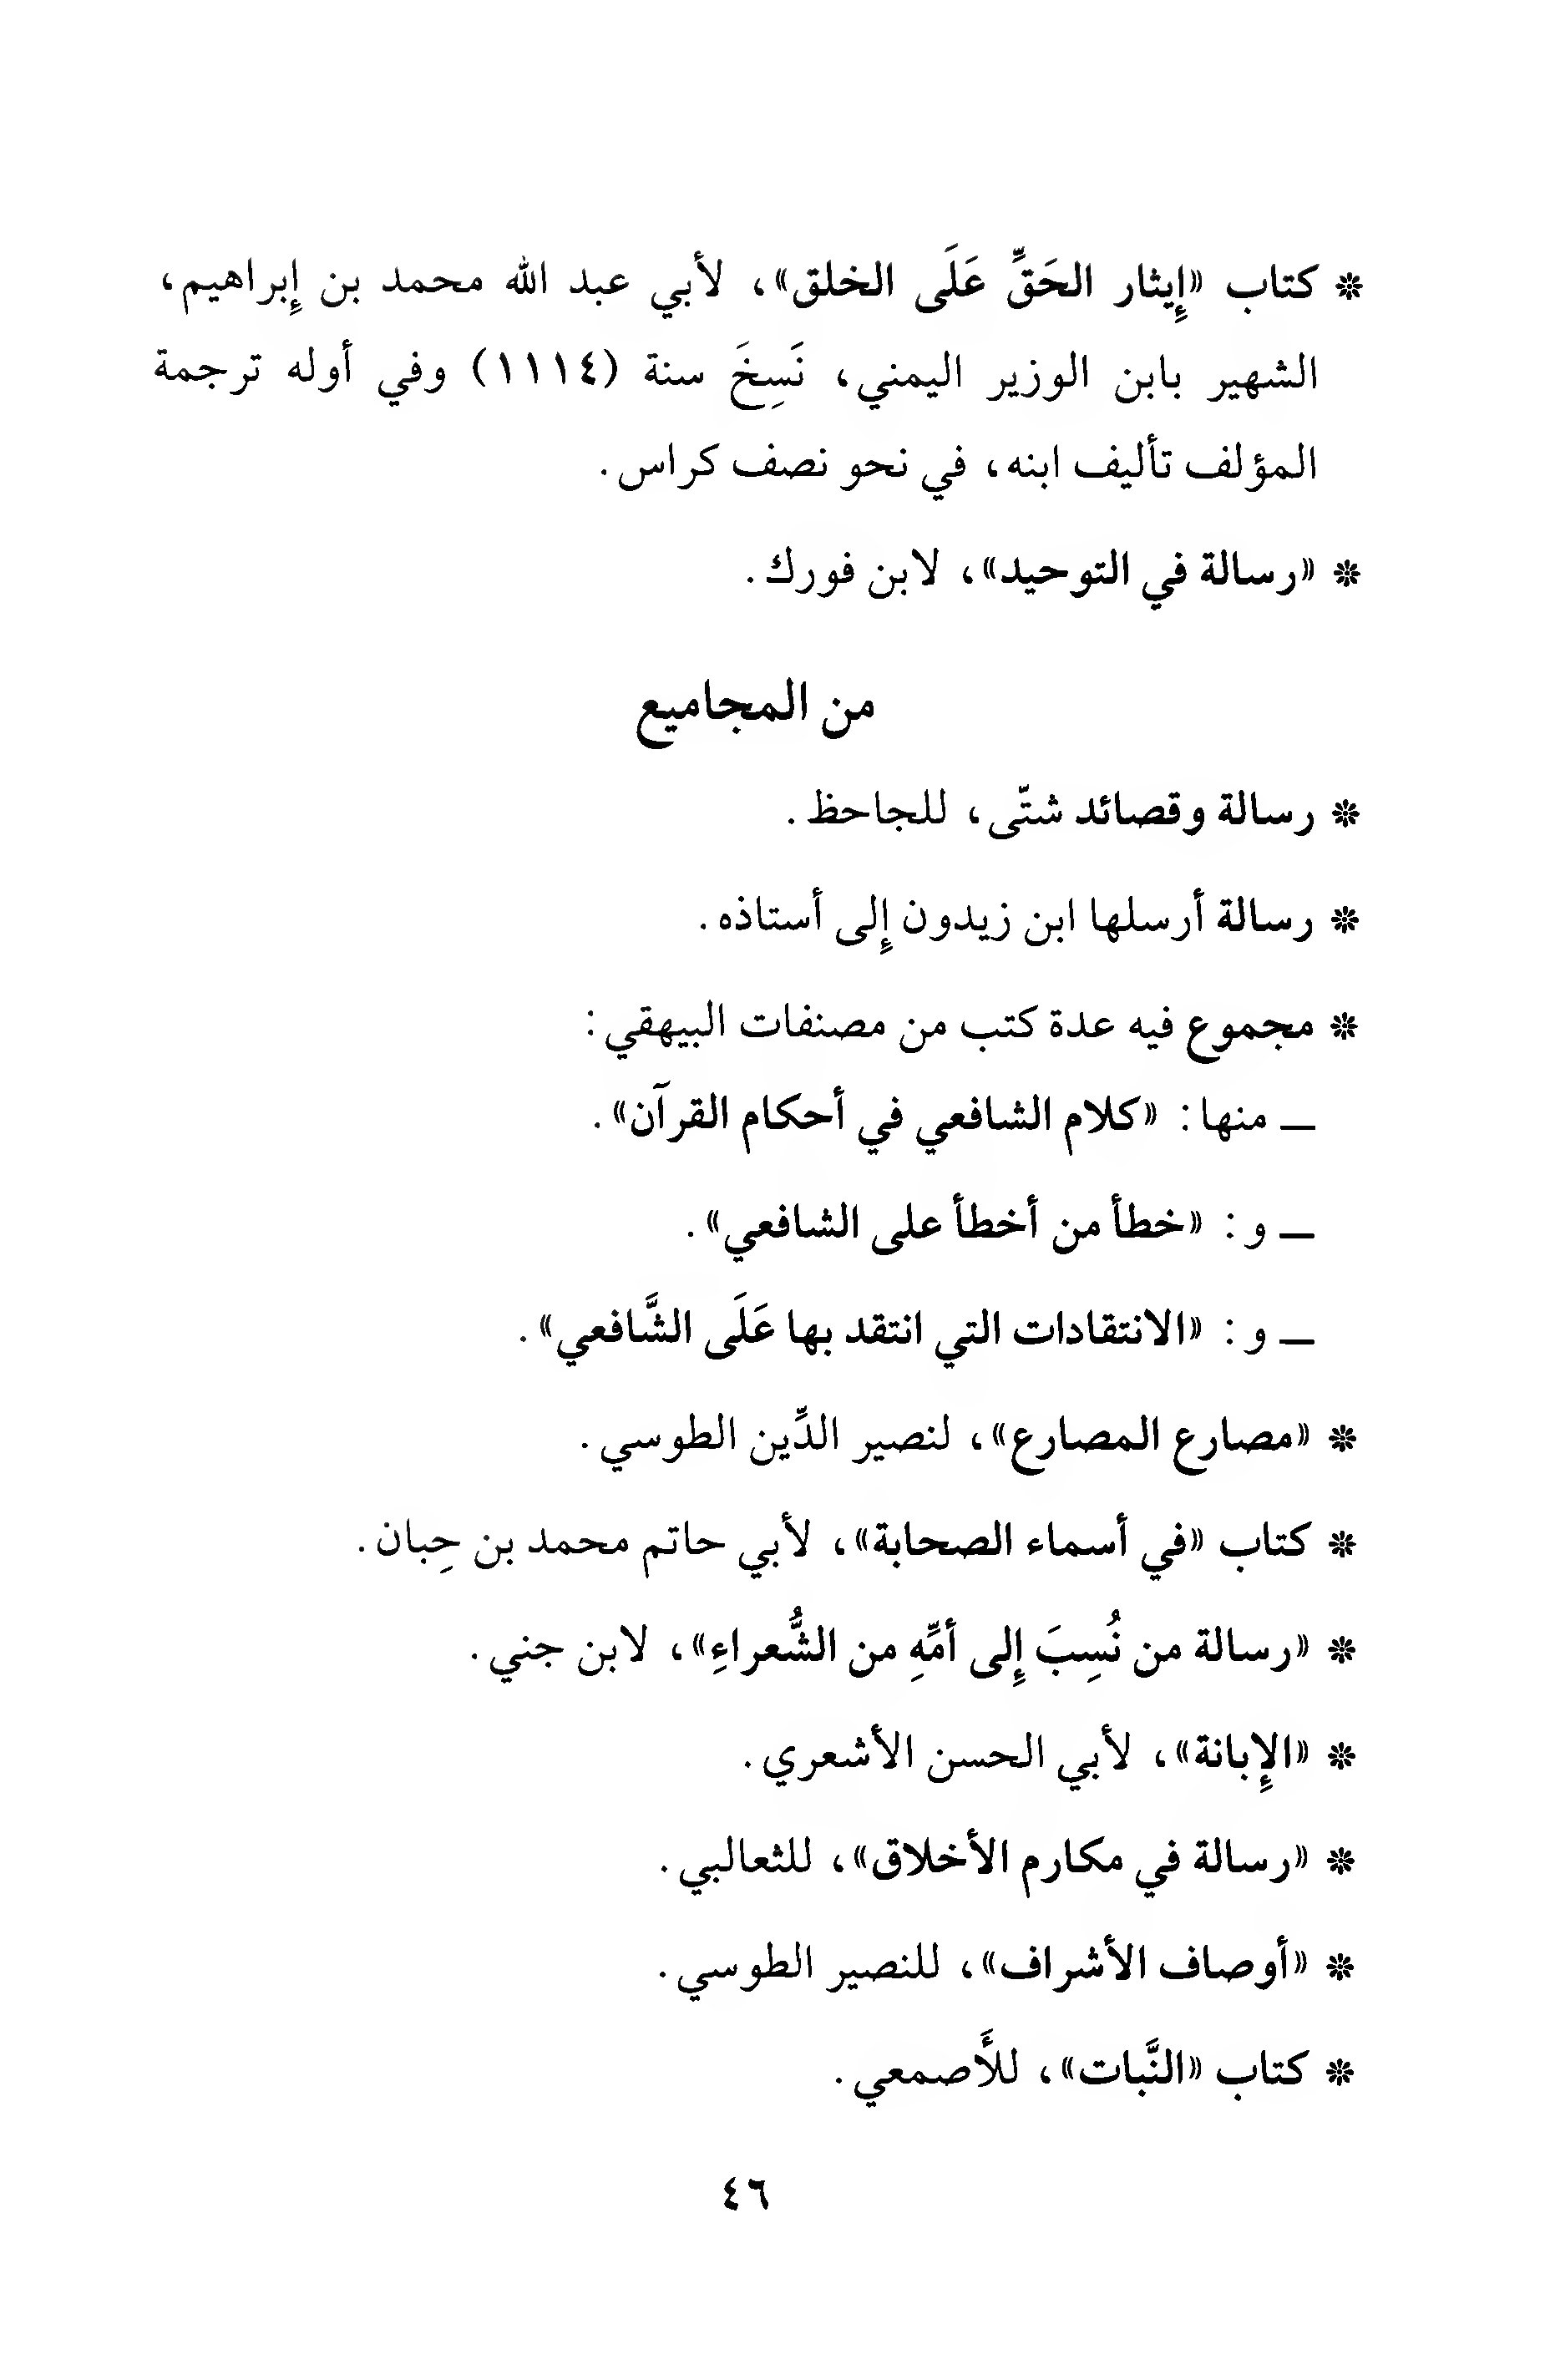 ❊ كتاب «إِيثار الحَقِّ عَلَى الخلق»، لأبي عبد الله محمد بن إِبراهيم،
الشهير بابن الوزير اليمني، نَسِخَ سنة (١١١٤) وفي أوله ترجمة
المؤلف تأليف ابنه، في نحو نصف كراس.
❊ «رسالة في التوحيد»، لابن فورك.
من المجاميع
❊ رسالة وقصائد شتّى، للجاحظ.
❊ رسالة أرسلها ابن زيدون إِلى أستاذه.
❊ مجموع فيه عدة كتب من مصنفات البيهقي:
ــ منها: «كلام الشافعي في أحكام القرآن».
ــ و: «خطأ من أخطأ على الشافعي».
ــ و: «الانتقادات التي انتقد بها عَلَى الشَّافعي».
❊ «مصارع المصارع»، لنصير الدِّين الطوسي.
❊ كتاب «في أسماء الصحابة»، لأبي حاتم محمد بن حِبان.
❊ «رسالة من نُسِبَ إِلى أمِّهِ من الشُّعراءِ»، لابن جني.
❊ «الإِبانة»، لأبي الحسن الأشعري.
❊ «رسالة في مكارم الأخلاق»، للثعالبي.
❊ «أوصاف الأشراف»، للنصير الطوسي.
❊ كتاب «النَّبات»، للأَصمعي.
٤٦